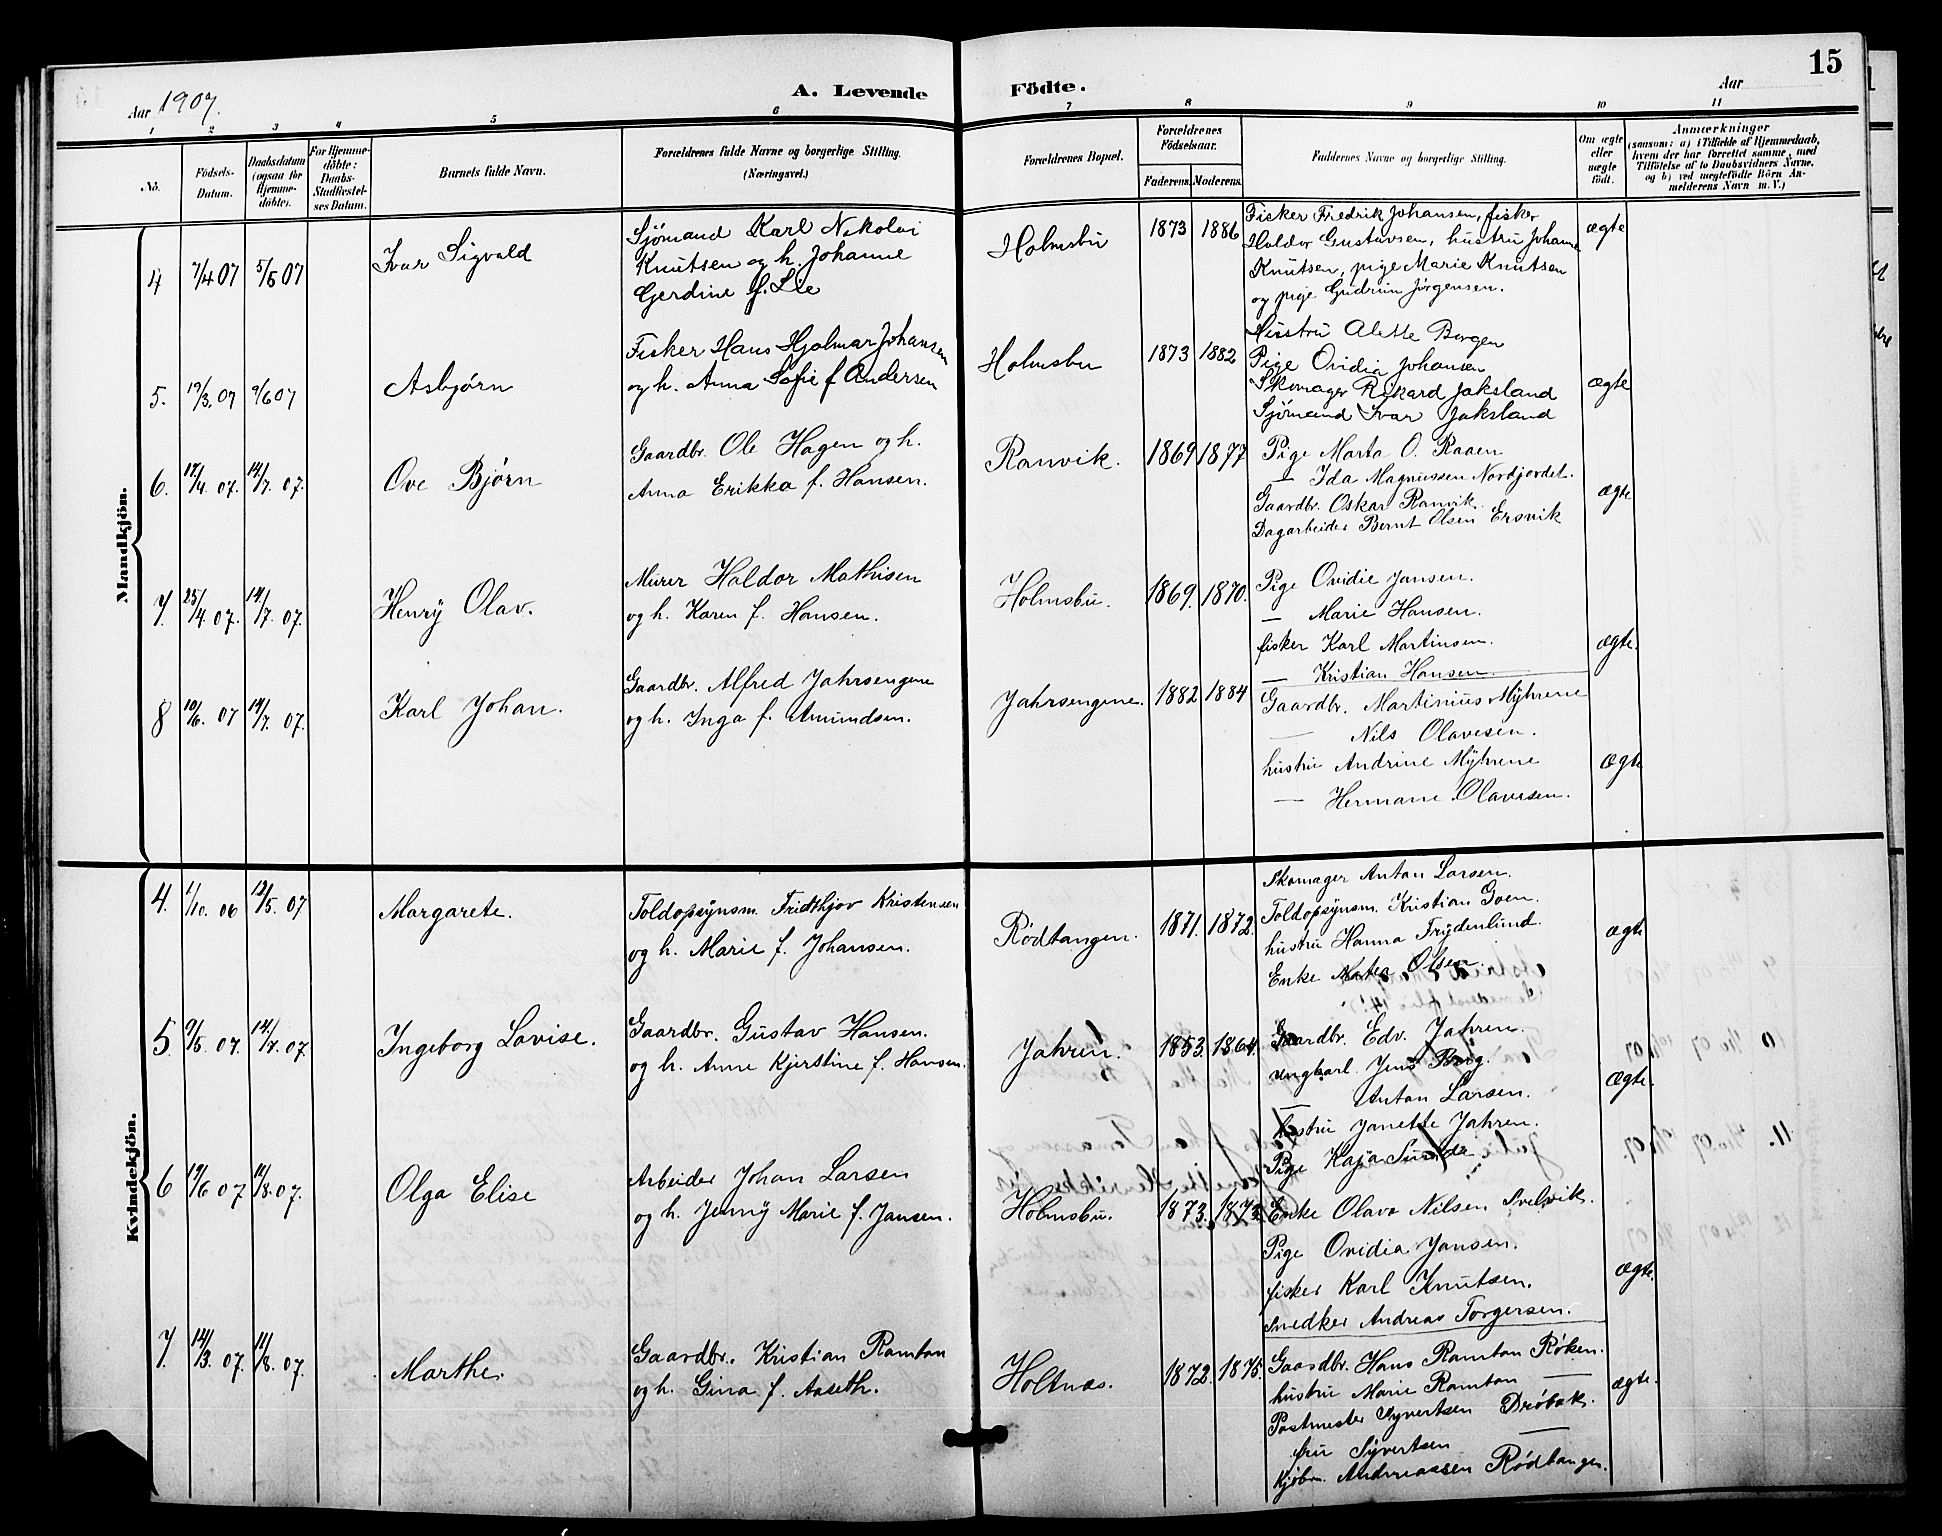 15
Aar 1907.
A. Levende Födte.
Aar
1 2 3 4 5 6 7 8 9 10 11
No.
Födsels-Datum.
Daabsdatum (ogsaa for Hjemme-döbte).
For Hjemme-döbte: Daabs-Stadfæstel-ses Datum.
Barnets fulde Navn.
Forældrenes fulde Navne og borgerlige Stilling.
(Næringsvei.)
Forældrenes Bopæl.
Forældrenes Födselsaar.
Faderens. Moderens.
Faddernes Navne og borgerlige Stilling.
Om ægte eller uægte födt.
Anmærkninger
(saasom: a) i Tilfælde af Hjemmedaab,
hvem der har forrettet samme, med
Tilföielse af to Daabsvidners Navne,
og b) ved uægtefödte Börn An-
melderens Navn m. V.)
Mandkjön.
4 7/4 07 5/5 07 Ivar Sigvald
Sjömand Karl Nikolai
Knutsen og h. Johanne
Gerdine f. Lie
Holmsbu 1873 1886
Fisker Fredrik Johansen, fisker
Haldor Gustavsen, hustru Johanne
Knutsen, pige Marie Knutsen
og pige Gudrun Jörgensen.
ægte
5. 19/3. 07 9/6 07 Asbjørn
Fisker Hans Hjalmar Johansen
og h. Anna Sofie f Andersen
Holmsbu 1873 1882
Hustru Alette Bergen
Pige Ovidia Johansen
Skomager Rikard Jaksland
Sjömand Ivar Jaksland
ægte
6. 17/4. 07. 14/7. 07. Ove Bjørn
Gaardbr. Ole Hagen og h.
Anna Erikka f. Hansen.
Ranvik. 1869 1877
Pige Marta O. Raaen
— Ida Magnussen Nordjordet.
Gaardbr. Oskar Ranvik.
Dagarbeider Bernt Olsen Ersvik
ægte
7. 25/4 07. 14/7. 07. Henrÿ Olav.
Murer Haldor Mathisen
og h. Karen f. Hansen.
Holmsbu. 1869. 1870.
Pige Ovidie Jansen.
— Marie Hansen.
fisker Karl Martinsen.
— Kristian Hansen.
ægte.
8 10/6. 07 14/7. 07. Karl Johan.
Gaardbr. Alfred Jahrsengene
og h. Inga f. Amundsen.
Jahrsengene. 1882 1884
Gaardbr. Martinius Mÿhrene
— Nils Olavesen.
hustru Andrine Mÿhrene
— Hermane Olavesen.
ægte
Kvindekjön.
4. 1/10. 06 12/5. 07 Margarete.
Toldopsÿnsm. Fridthjov Kristensen
og h. Marie f. Johansen.
Rödtangen. 1871. 1872.
Skomager Anton Larsen.
Toldopsÿnsm. Kristian Goen.
hustru Hanna Frydenlund.
Enke Olsen.
ægte
5. 9/5. 07. 14/7. 07. Ingeborg Lovise.
Gaardbr. Gustav Hansen.
og h. Anne Kjerstine f. Hansen.
Jahren. 1853. 1864.
Gaardbr. Edv. Jahren.
ungkarl. Jens Borg.
— Anton Larsen.
hustru Janette Jahren.
Pige Kaja Sunde
ægte.
6 19/6 07 11/8. 07. Olga Elise
Arbeider Johan Larsen
og h. Jennÿ Marie f. Jansen.
Holmsbu. 1873. 1873
Enke Olava Nilsen Svelvik.
Pige Ovidia Jansen.
fisker Karl Knutsen.
Snedker Andreas Torgersen.
ægte.
7. 14/3. 07. 11/8. 07. Marthe.
Gaardbr. Kristian Ramton
og h. Gina f. Aaseth.
Holtnæs. 1872. 1875.
Gaardbr. Hans Ramton Røken.
hustru Marie Ramton —
Postmester Syvertsen Drøbak.
fru Sÿvertsen —
Kjöbm. Andreassen Rödtangen.
ægte.